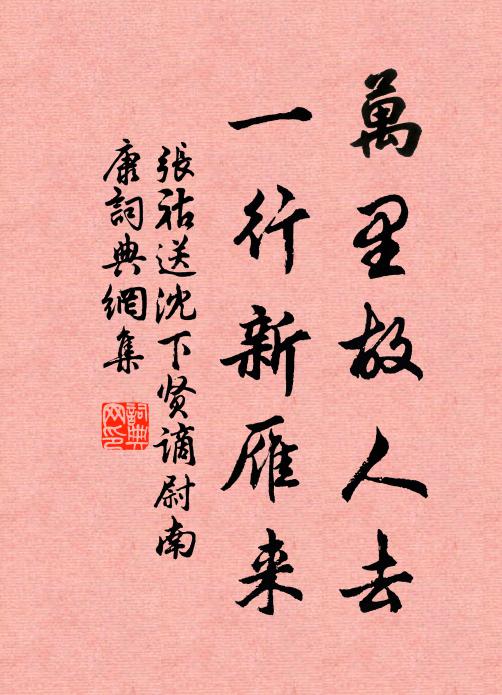 萬里故人去
一行新雁来
張祜送沈下贤謫尉南
康詞典網集
詞典
网印